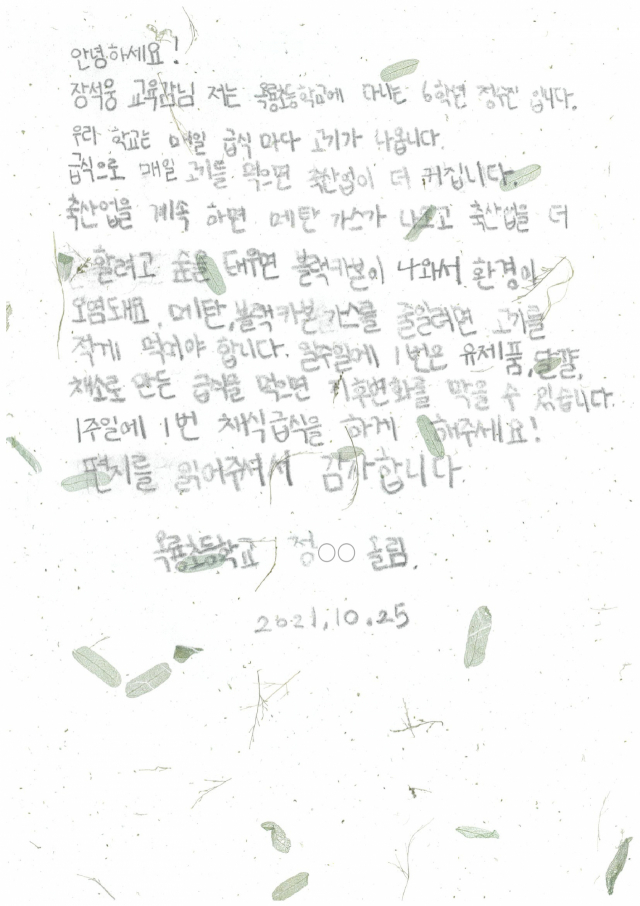 안녕하세요!
장석웅 교육감님 저는 옥룡초등학교에 다니는 6학년 정유진 입니다.
우리 학교는 매일 급식 마다 고기가 나옵니다.
급식으로 매일 고기를 먹으면 축산업이 더 커집니다.
축산업을 계속 하면 메탄 가스가 나오고 축산업을 더
할려고 숲을 태우면 블랙카본이 나와서 환경이
오염돼요. 메탄, 블랙카본 가스를 줄일려면 고기를
적게 먹어야 합니다. 일주일에 1번은 유제품, 달걀,
채소로 만든 급식을 먹으면 기후변화를 막을 수 있습니다.
1주일에 1번 채식급식을 하게 해주세요!
편지를 읽어주셔서 감사합니다.
옥룡초등학교 정○○ 올림.
2021.10.25